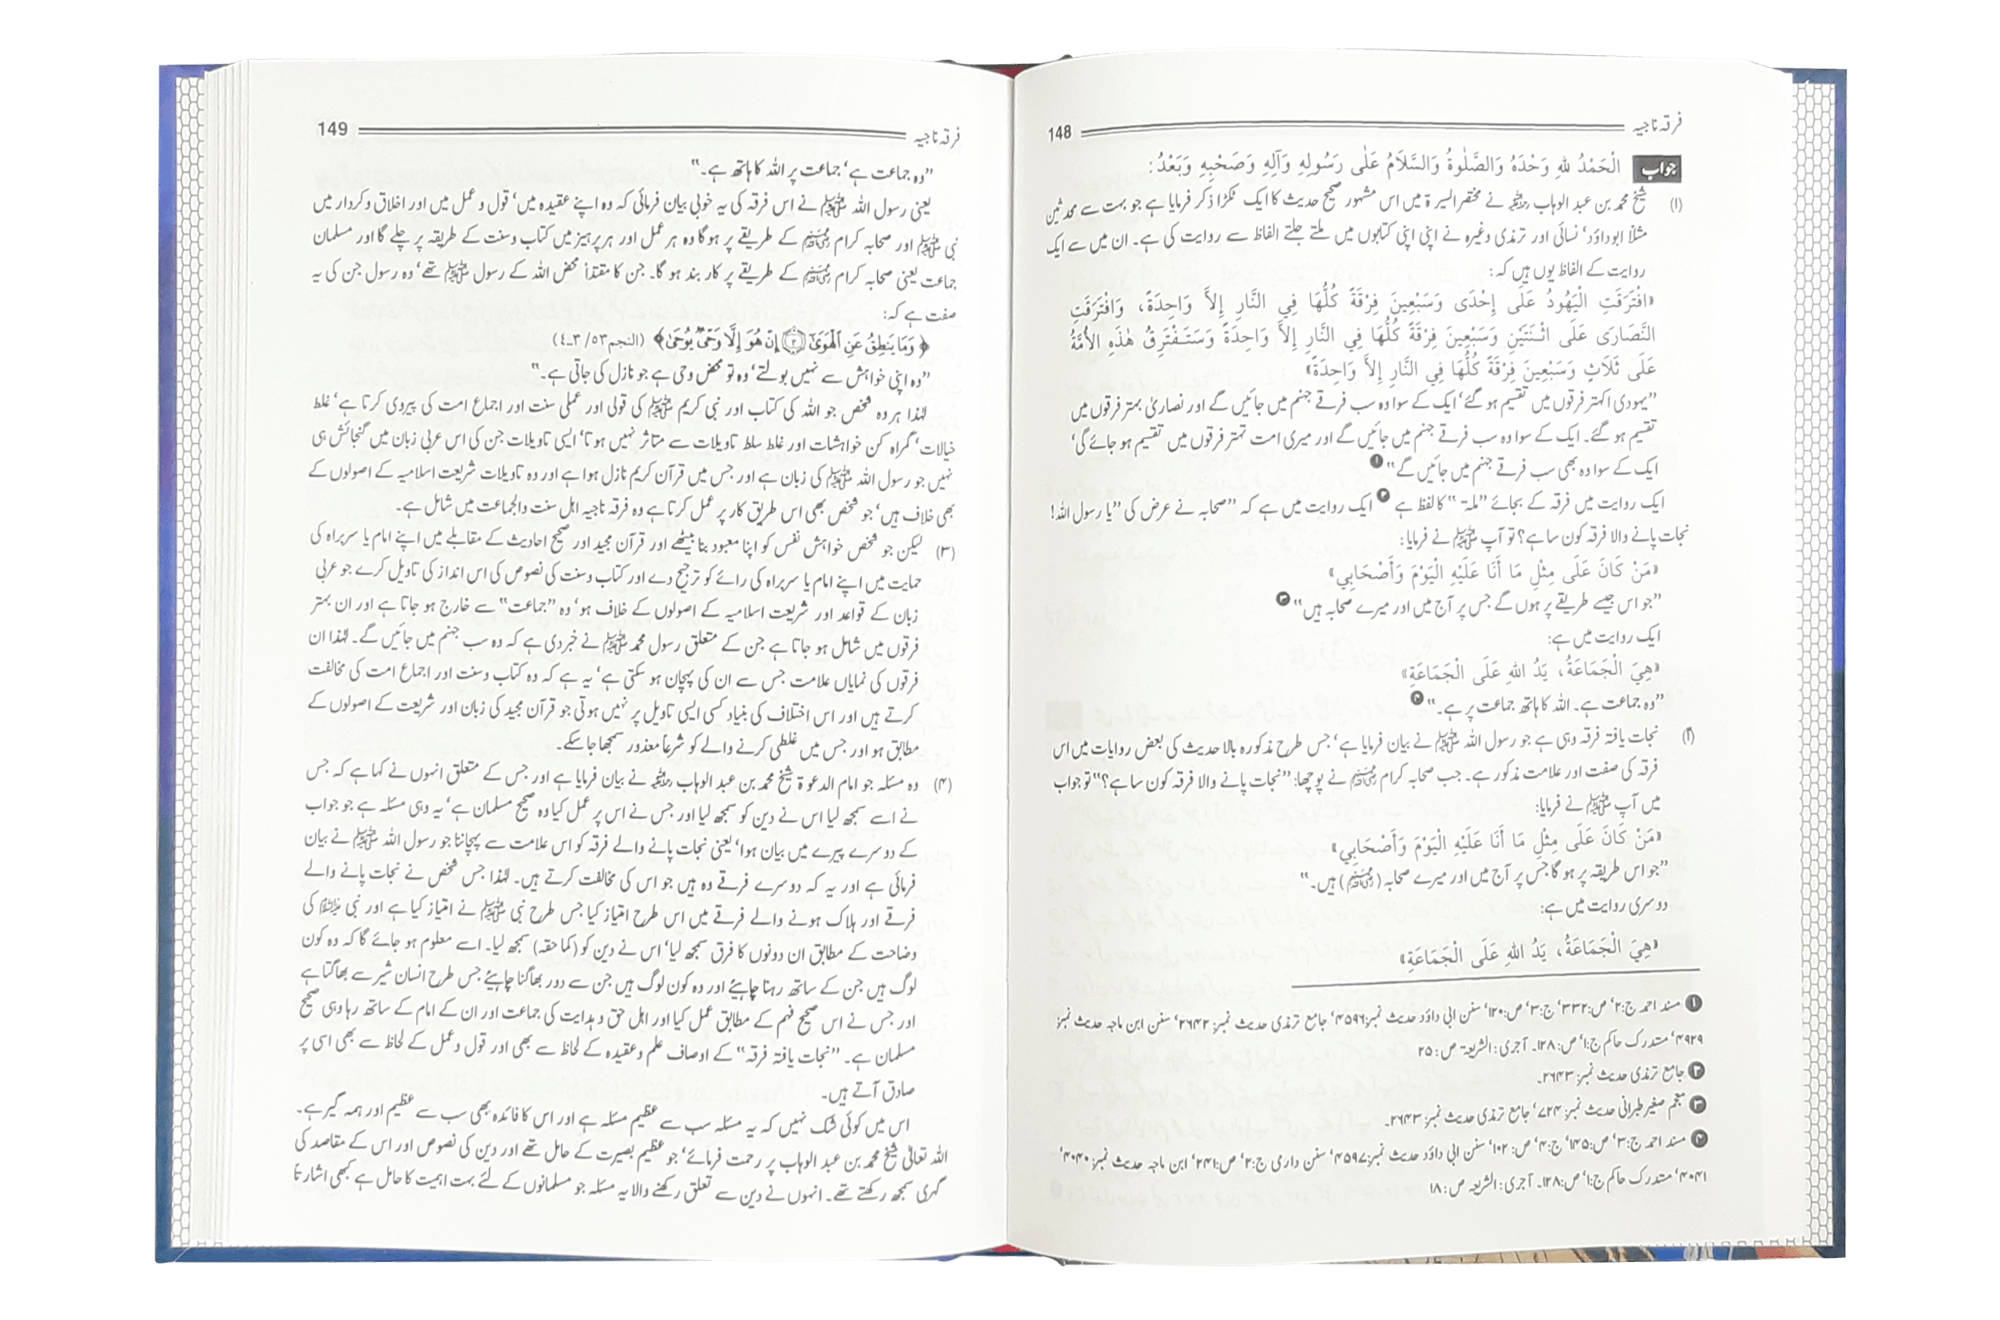 فرقہ ناجیہ 148
جواب الْحَمْدُ للهِ وَحْدَهُ وَالصَّلٰوةُ وَالسَّلَامُ عَلٰى رَسُولِهِ وَآلِهِ وَصَحْبِهِ وَبَعْدُ:
(۱) شیخ محمد بن عبد الوہاب رحمہ اللہ نے مختصر السیرۃ میں اس مشہور صحیح حدیث کا ایک ٹکڑا ذکر فرمایا ہے جو بہت سے محدثین
مثلاً ابوداؤد‘ نسائی اور ترمذی وغیرہ نے اپنی اپنی کتابوں میں ملتے جلتے الفاظ سے روایت کی ہے۔ ان میں سے ایک
روایت کے الفاظ یوں ہیں کہ:
«افْتَرَقَتِ الْيَهُودُ عَلَى إِحْدَى وَسَبْعِينَ فِرْقَةً كُلُّهَا فِي النَّارِ إِلاَّ وَاحِدَةً، وَافْتَرَقَتِ
النَّصَارَى عَلَى اثْنَتَيْنِ وَسَبْعِينَ فِرْقَةً كُلُّهَا فِي النَّارِ إِلاَّ وَاحِدَةً وَسَتَفْتَرِقُ هٰذِهِ الأُمَّةُ
عَلَى ثَلَاثٍ وَسَبْعِينَ فِرْقَةً كُلُّهَا فِي النَّارِ إِلاَّ وَاحِدَةً»
”یہودی اکہتر فرقوں میں تقسیم ہو گئے‘ ایک کے سوا وہ سب فرقے جہنم میں جائیں گے اور نصاریٰ بہتر فرقوں میں
تقسیم ہو گئے۔ ایک کے سوا وہ سب فرقے جہنم میں جائیں گے اور میری امت تہتر فرقوں میں تقسیم ہو جائے گی‘
ایک کے سوا وہ بھی سب فرقے جہنم میں جائیں گے“ ❶
ایک روایت میں فرقہ کے بجائے ”ملۃ“ کا لفظ ہے ❷ ایک روایت میں ہے کہ ”صحابہ نے عرض کی ”یا رسول اللہ!
نجات پانے والا فرقہ کون سا ہے؟ تو آپ ﷺ نے فرمایا:
«مَنْ كَانَ عَلَى مِثْلِ مَا أَنَا عَلَيْهِ الْيَوْمَ وَأَصْحَابِي»
”جو اس جیسے طریقے پر ہوں گے جس پر آج میں اور میرے صحابہ ہیں“ ❸
ایک روایت میں ہے:
«هِيَ الْجَمَاعَةُ، يَدُ اللهِ عَلَى الْجَمَاعَةِ»
”وہ جماعت ہے۔ اللہ کا ہاتھ جماعت پر ہے۔“ ❹
(۲) نجات یافتہ فرقہ وہی ہے جو رسول اللہ ﷺ نے بیان فرمایا ہے‘ جس طرح مذکورہ بالا حدیث کی بعض روایات میں اس
فرقہ کی صفت اور علامت مذکور ہے۔ جب صحابہ کرام رضی اللہ عنہم نے پوچھا: ”نجات پانے والا فرقہ کون سا ہے؟“ تو جواب
میں آپ ﷺ نے فرمایا:
«مَنْ كَانَ عَلَى مِثْلِ مَا أَنَا عَلَيْهِ الْيَوْمَ وَأَصْحَابِي»
”جو اس طریقہ پر ہو گا جس پر آج میں اور میرے صحابہ (رضی اللہ عنہم) ہیں۔“
دوسری روایت میں ہے:
«هِيَ الْجَمَاعَةُ، يَدُ اللهِ عَلَى الْجَمَاعَةِ»
❶ مسند احمد ج:۲‘ ص:۳۳۲‘ ج:۳‘ ص:۱۲۰‘ سنن ابی داؤد حدیث نمبر:۴۵۹۶‘ جامع ترمذی حدیث نمبر: ۲۶۴۲‘ سنن ابن ماجہ حدیث نمبر:
۴۹۲۹‘ مستدرک حاکم ج:۱‘ ص:۱۲۸۔ آجری: الشریعۃ ص: ۲۵
❷ جامع ترمذی حدیث نمبر: ۲۶۴۳۔
❸ معجم صغیر طبرانی حدیث نمبر: ۷۲۴‘ جامع ترمذی حدیث نمبر: ۲۶۴۳۔
❹ مسند احمد ج:۳‘ ص:۱۴۵‘ ج:۴‘ ص: ۱۰۲‘ سنن ابی داؤد حدیث نمبر:۴۵۹۷‘ سنن دارمی ج:۲‘ ص:۲۴۱‘ ابن ماجہ حدیث نمبر: ۴۰۴۰‘
۴۰۴۱‘ مستدرک حاکم ج:۱‘ ص:۱۲۸۔ آجری: الشریعہ ص: ۱۸
فرقہ ناجیہ 149
”وہ جماعت ہے‘ جماعت پر اللہ کا ہاتھ ہے۔“
یعنی رسول اللہ ﷺ نے اس فرقہ کی یہ خوبی بیان فرمائی کہ وہ اپنے عقیدہ میں‘ قول و عمل میں اور اخلاق و کردار میں
نبی ﷺ اور صحابہ کرام رضی اللہ عنہم کے طریقے پر ہو گا وہ ہر عمل اور ہر پرہیز میں کتاب و سنت کے طریقہ پر چلے گا اور مسلمان
جماعت یعنی صحابہ کرام رضی اللہ عنہم کے طریقے پر کاربند ہو گا۔ جن کا مقتدا محض اللہ کے رسول ﷺ تھے‘ وہ رسول جن کی یہ
صفت ہے کہ:
﴿وَمَا يَنطِقُ عَنِ ٱلْهَوَىٰٓ ۝٣ إِنْ هُوَ إِلَّا وَحْىٌ يُوحَىٰ﴾ (النجم۵۳/ ۳۔۴)
”وہ اپنی خواہش سے نہیں بولتے‘ وہ تو محض وحی ہے جو نازل کی جاتی ہے۔“
لہٰذا ہر وہ شخص جو اللہ کی کتاب اور نبی کریم ﷺ کی قولی اور عملی سنت اور اجماع امت کی پیروی کرتا ہے‘ غلط
خیالات‘ گمراہ کن خواہشات اور غلط سلط تاویلات سے متاثر نہیں ہوتا‘ ایسی تاویلات جن کی اس عربی زبان میں گنجائش ہی
نہیں جو رسول اللہ ﷺ کی زبان ہے اور جس میں قرآن کریم نازل ہوا ہے اور وہ تاویلات شریعت اسلامیہ کے اصولوں کے
بھی خلاف ہیں‘ جو شخص بھی اس طریق کار پر عمل کرتا ہے وہ فرقہ ناجیہ اہل سنت والجماعت میں شامل ہے۔
(۳) لیکن جو شخص خواہش نفس کو اپنا معبود بنا بیٹھے اور قرآن مجید اور صحیح احادیث کے مقابلے میں اپنے امام یا سربراہ کی
حمایت میں اپنے امام یا سربراہ کی رائے کو ترجیح دے اور کتاب و سنت کی نصوص کی اس انداز کی تاویل کرے جو عربی
زبان کے قواعد اور شریعت اسلامیہ کے اصولوں کے خلاف ہو‘ وہ ”جماعت“ سے خارج ہو جاتا ہے اور ان بہتر
فرقوں میں شامل ہو جاتا ہے جن کے متعلق رسول محمد ﷺ نے خبر دی ہے کہ وہ سب جہنم میں جائیں گے۔ لہٰذا ان
فرقوں کی نمایاں علامت جس سے ان کی پہچان ہو سکتی ہے‘ یہ ہے کہ وہ کتاب و سنت اور اجماع امت کی مخالفت
کرتے ہیں اور اس اختلاف کی بنیاد کسی ایسی تاویل پر نہیں ہوتی جو قرآن مجید کی زبان اور شریعت کے اصولوں کے
مطابق ہو اور جس میں غلطی کرنے والے کو شرعاً معذور سمجھا جا سکے۔
(۴) وہ مسئلہ جو امام الدعوۃ شیخ محمد بن عبد الوہاب رحمہ اللہ نے بیان فرمایا ہے اور جس کے متعلق انہوں نے کہا ہے کہ جس
نے اسے سمجھ لیا اس نے دین کو سمجھ لیا اور جس نے اس پر عمل کیا وہ صحیح مسلمان ہے‘ یہ وہی مسئلہ ہے جو جواب
کے دوسرے پیرے میں بیان ہوا‘ یعنی نجات پانے والے فرقہ کو اس علامت سے پہچانتا جو رسول اللہ ﷺ نے بیان
فرمائی ہے اور یہ کہ دوسرے فرقے وہ ہیں جو اس کی مخالفت کرتے ہیں۔ لہٰذا جس شخص نے نجات پانے والے
فرقے اور ہلاک ہونے والے فرقے میں اس طرح امتیاز کیا جس طرح نبی ﷺ نے امتیاز کیا ہے اور نبی علیہ السلام کی
وضاحت کے مطابق ان دونوں کا فرق سمجھ لیا‘ اس نے دین کو (کما حقہ) سمجھ لیا۔ اسے معلوم ہو جائے گا کہ وہ کون
لوگ ہیں جن کے ساتھ رہنا چاہئے اور وہ کون لوگ ہیں جن سے دور بھاگنا چاہئے جس طرح انسان شیر سے بھاگتا ہے
اور جس نے اس صحیح فہم کے مطابق عمل کیا اور اہل حق و ہدایت کی جماعت اور ان کے امام کے ساتھ رہا وہی صحیح
مسلمان ہے۔ ”نجات یافتہ فرقہ“ کے اوصاف علم و عقیدہ کے لحاظ سے بھی اور قول و عمل کے لحاظ سے بھی اسی پر
صادق آتے ہیں۔
اس میں کوئی شک نہیں کہ یہ مسئلہ سب سے عظیم مسئلہ ہے اور اس کا فائدہ بھی سب سے عظیم اور ہمہ گیر ہے۔
اللہ تعالیٰ شیخ محمد بن عبد الوہاب پر رحمت فرمائے‘ جو عظیم بصیرت کے حامل تھے اور دین کی نصوص اور اس کے مقاصد کی
گہری سمجھ رکھتے تھے۔ انہوں نے دین سے تعلق رکھنے والا یہ مسئلہ جو مسلمانوں کے لئے بہت اہمیت کا حامل ہے کبھی اشارتاً